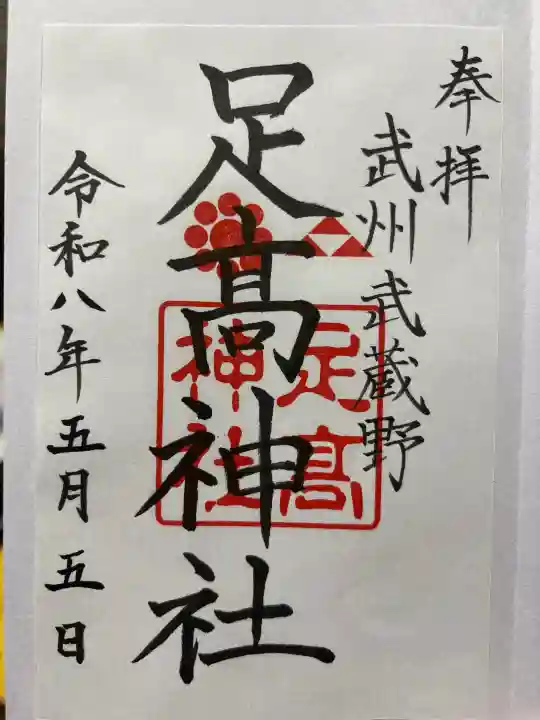 奉拝
武州武蔵野
足高神社
足高
神社
令和八年五月五日